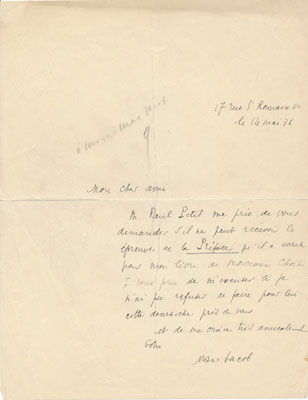 17 rue St Romain VI
le 14 mai 36
Mon cher ami
M Paul Petit me prie de vous
demander s'il ne peut recevoir les
épreuves de la Préface qu'il a écrite
pour mon livre de Morceaux Choisis
Je vous prie de m'excuser si je
n'ai pu refuser de faire pour lui
cette démarche près de vous
et de me croire très amicalement
votre
Max Jacob